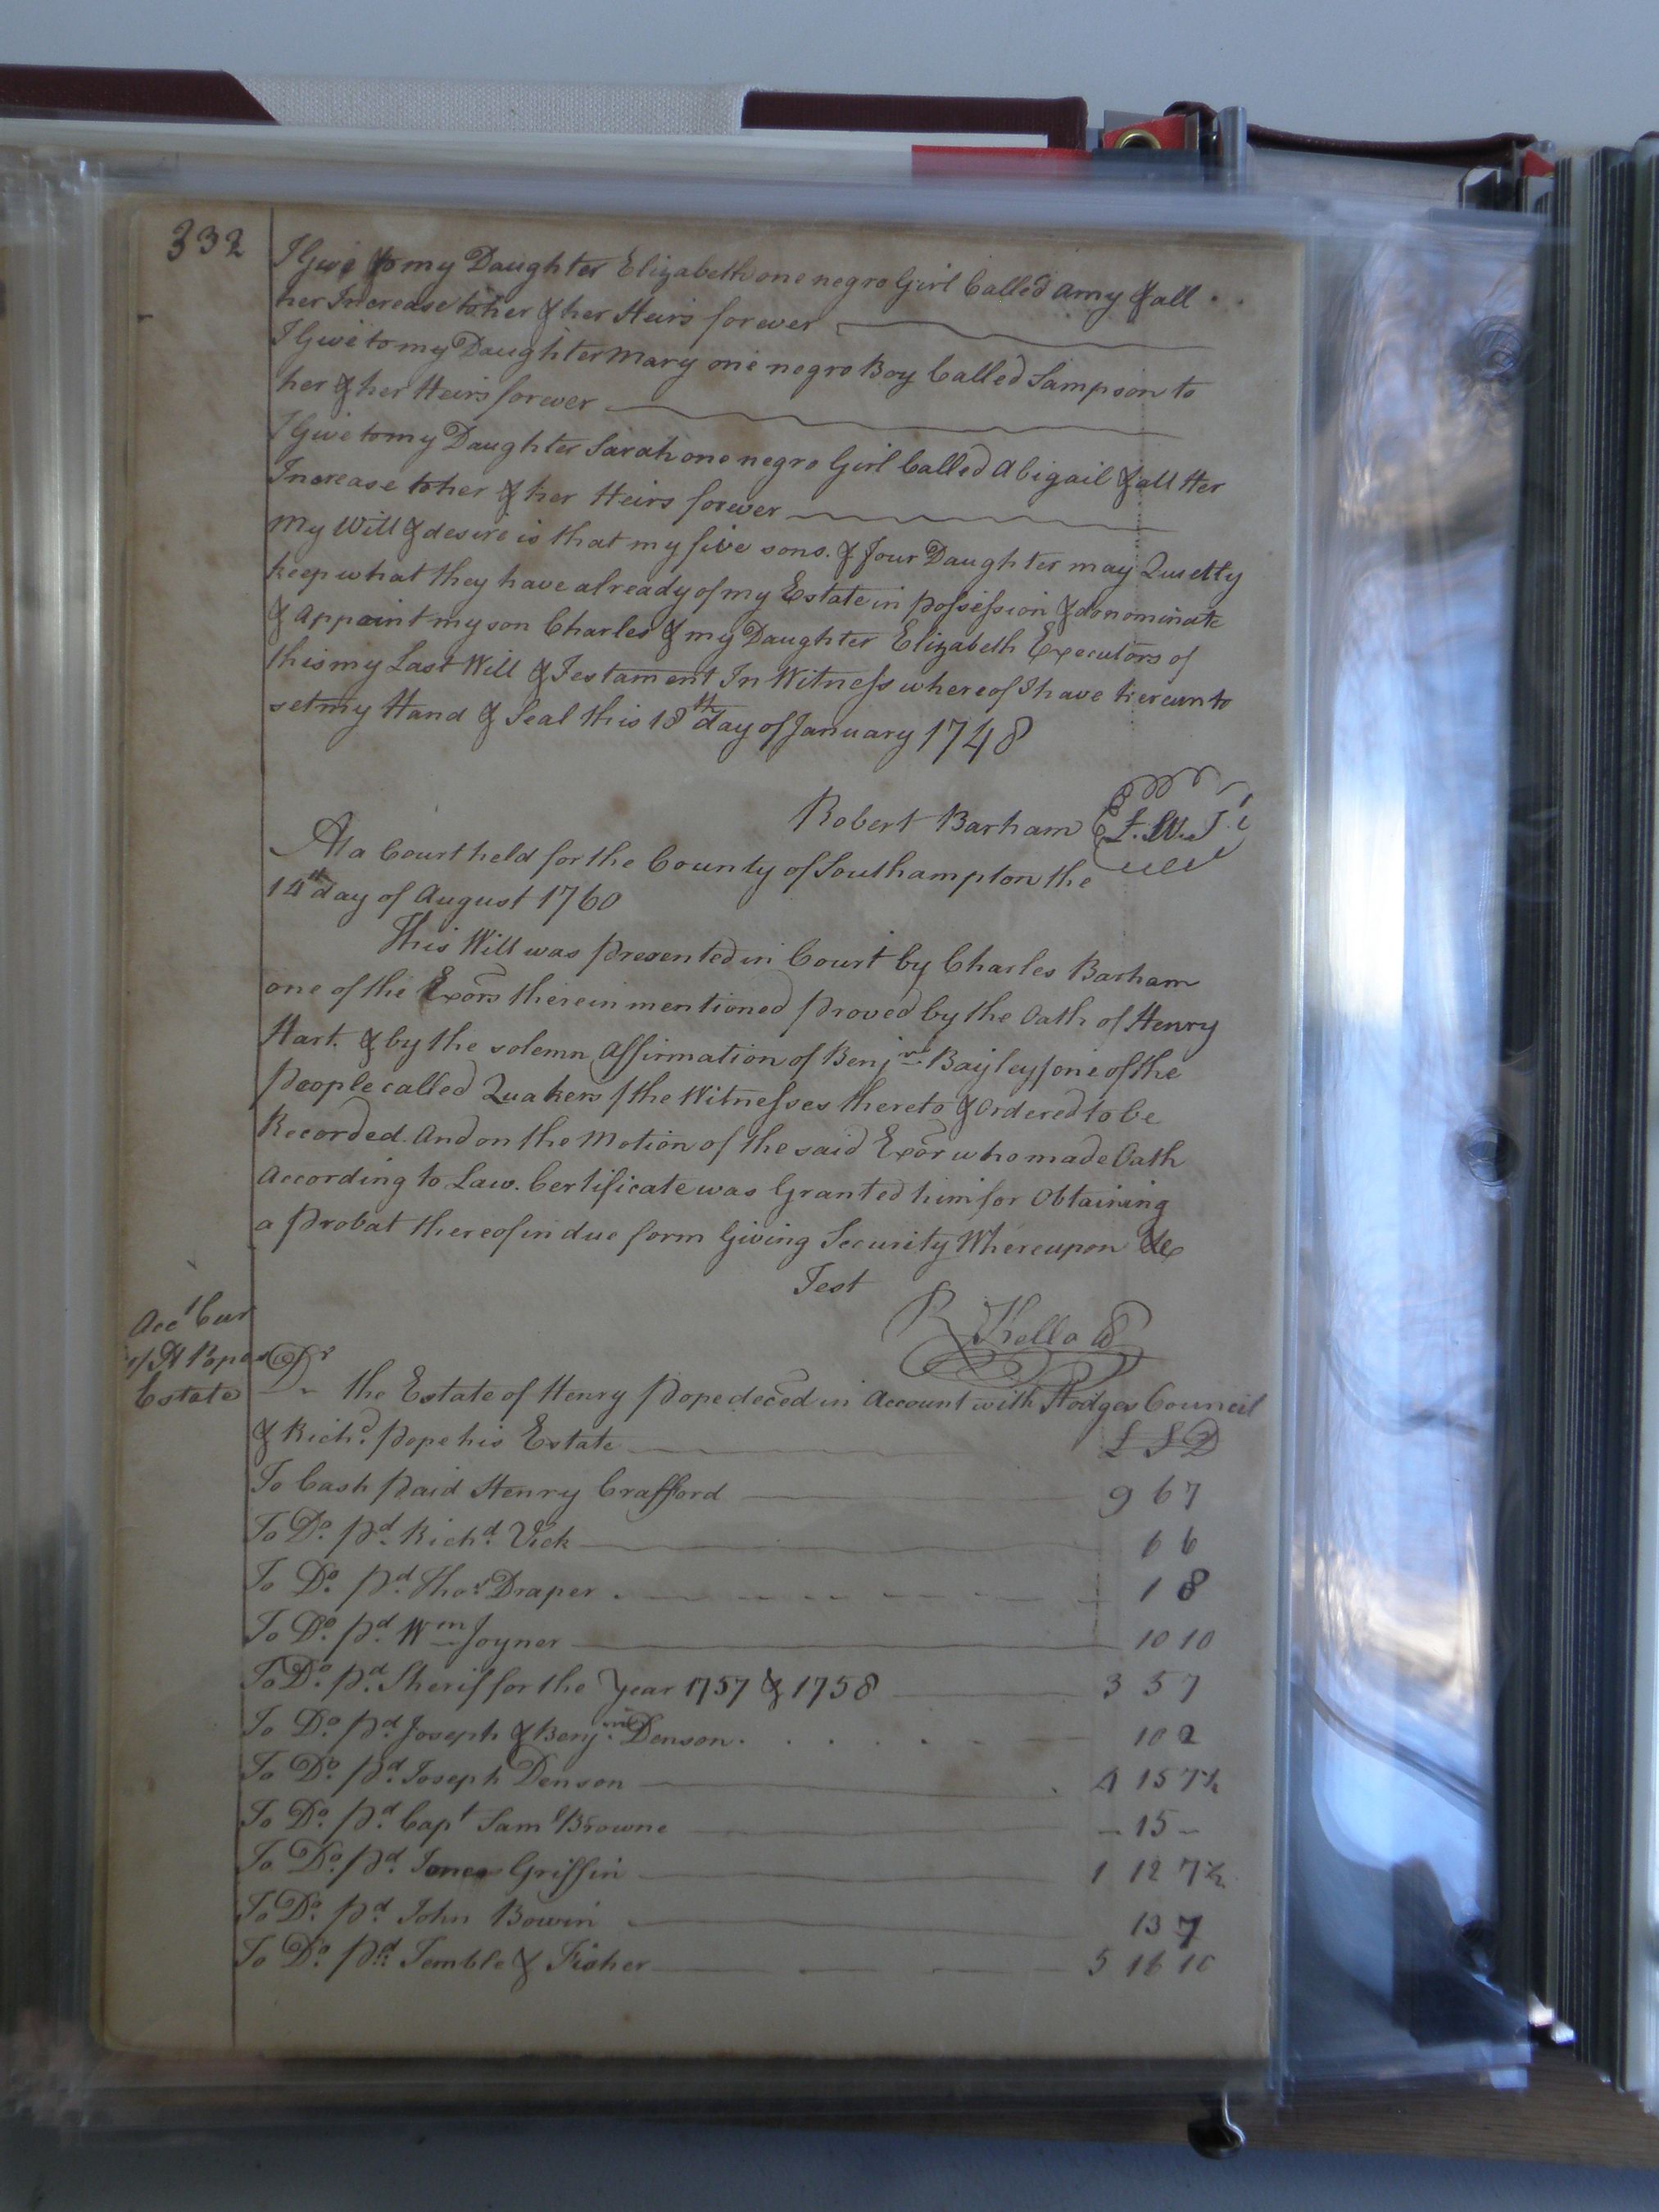 332
I Give to my Daughter Elizabeth one negro Girl Called Amy & all
her Increase to her & her Heirs forever
I Give to my Daughter Mary one negro Boy Called Sampson to
her & her Heirs forever
I Give to my Daughter Sarah one negro Girl Called Abigail & all Her
Increase to her & her Heirs forever
My Will & desire is that my five sons. & four Daughter may Quietly
keep what they have already of my Estate in possession & do nominate
& Appoint my son Charles & my Daughter Elizabeth Executors of
this my Last Will & Testament In Witness whereof I have hereunto
set my Hand & Seal this 18th day of January 1748
Robert Barham
At a Court held for the County of Southampton the
14th day of August 1760
This Will was presented in Court by Charles Barham
one of the Exors therein mentioned proved by the Oath of Henry
Hart. & by the solemn Affirmation of Benjn. Bayley/one of the
people called Quakers/the Witnesses thereto & Ordered to be
Recorded. And on the Motion of the said Exor who made Oath
According to Law. Certificate was Granted him for Obtaining
a Probat thereof in due form Giving Security Whereupon &c
Test
R Kello
Acct Cur
of H Popes
Estate
Dr. the Estate of Henry Pope deced in Account with Hodges Council
& Richd. Pope his Estate £ S D
To Cash paid Henry Crafford 9 6 7
To Do. pd. Richd. Vick 6 6
To Do. pd. Thos. Draper 1 8
To Do. pd. Wm Joyner 10 10
To Do. pd. Sherif for the year 1757 & 1758 3 5 7
To Do. pd. Joseph & Benjn. Denson 10 2
To Do. pd. Joseph Denson 4 15 7½
To Do. pd. Capt Saml Browne - 15 -
To Do. pd. Jones Griffin 1 12 7½
To Do. pd. John Bowin 13 7
To Do. pd. Temble & Fisher 5 16 10